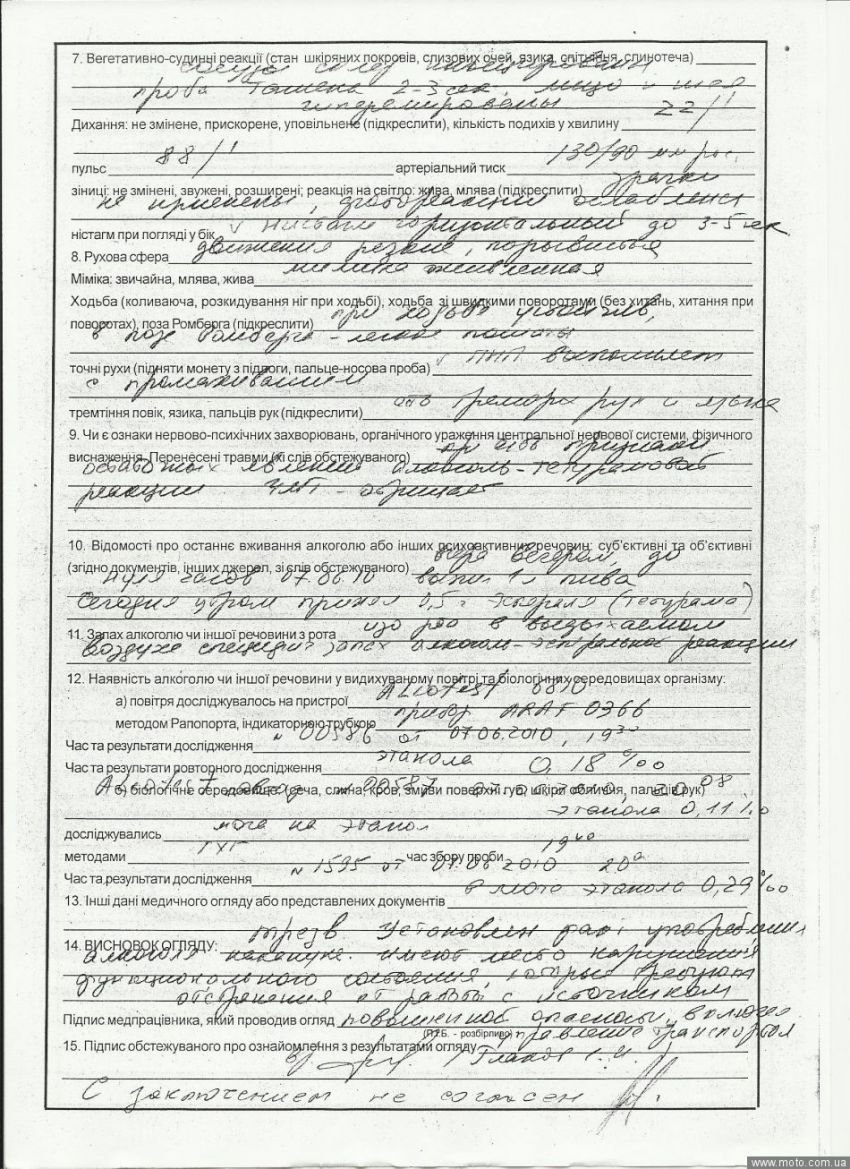 7. Вегетативно-судинні реакції (стан шкіряних покровів, слизових очей, язика, спітніння, слинотеча)
сосуды склер инъецированы
проба Ташена 2-3 сек, лицо и шея
гиперемированы
Дихання: не змінене, прискорене, уповільнене (підкреслити), кількість подихів у хвилину 22/1'
пульс 88/1' артеріальний тиск 130/90 мм рт.
зіниці: не змінені, звужені, розширені; реакція на світло: жива, млява (підкреслити) зрачки
не изменены, фотореакция ослаблена
ністагм при погляді у бік √ Нистагм горизонтальный до 3-5 сек
8. Рухова сфера движения резкие, порывистые
Міміка: звичайна, млява, жива мимика оживленная
Ходьба (коливаюча, розкидування ніг при ходьбі), ходьба зі швидкими поворотами (без хитань, хитання при
поворотах), поза Ромберга (підкреслити) при ходьбе
в позе Ромберга - легкое
точні рухи (підняти монету з підлоги, пальце-носова проба) √ ПНП выполняет
с промахиванием
тремтіння повік, язика, пальців рук (підкреслити) тремора рук и языка
9. Чи є ознаки нервово-психічних захворювань, органічного ураження центральної нервової системи, фізичного
виснаження. Перенесені травми (зі слів обстежуваного) признаки
остаточных явлений алкоголь-тетурамовой
реакции. ЧМТ - отрицает
10. Відомості про останнє вживання алкоголю або інших психоактивних речовин: суб'єктивні та об'єктивні
(згідно документів, інших джерел, зі слів обстежуваного) вчера вечером, до
нуля часов 07.06.10 выпил 1 л пива
Сегодня утром принял 0,5 г эспераля (тетурама)
11. Запах алкоголю чи іншої речовини з рота изо рта в выдыхаемом
воздухе специфич запах алкоголь-эсперальной реакции
12. Наявність алкоголю чи іншої речовини у видихуваному повітрі та біологічних середовищах організму:
а) повітря досліджувалось на пристрої Alcotest 6810
методом Рапопорта, індикаторною трубкою прибор ARAF 0366
Час та результати дослідження № 00586 от 07.06.2010, 19³⁰
Час та результати повторного дослідження этанола 0,18 ‰
б) біологічне середовище (сеча, слина, кров, змиви поверхні губ, шкіри обличчя, пальців рук)
№ 00587 07.06.2010, 20⁰⁸
этанола 0,11 ‰
досліджувались моча на этанол
методами ГЖХ час збору проби 19⁴⁰
Час та результати дослідження № 1595 от 07.06.2010 20
в моче этанола 0,29 ‰
13. Інші дані медичного огляду або представлених документів
14. ВИСНОВОК ОГЛЯДУ: трезв. Установлен факт употребления
алкоголя накануне. Имеют место нарушения
функционального состояния, которые требуют
отстранения от работы с источником
Підпис медпрацівника, який проводив огляд повышенной опасности, включая
(П.І.Б. - розбірливо) управление транспортом
15. Підпис обстежуваного про ознайомлення з результатами огляду
С заключением не согласен
www.moto.com.ua